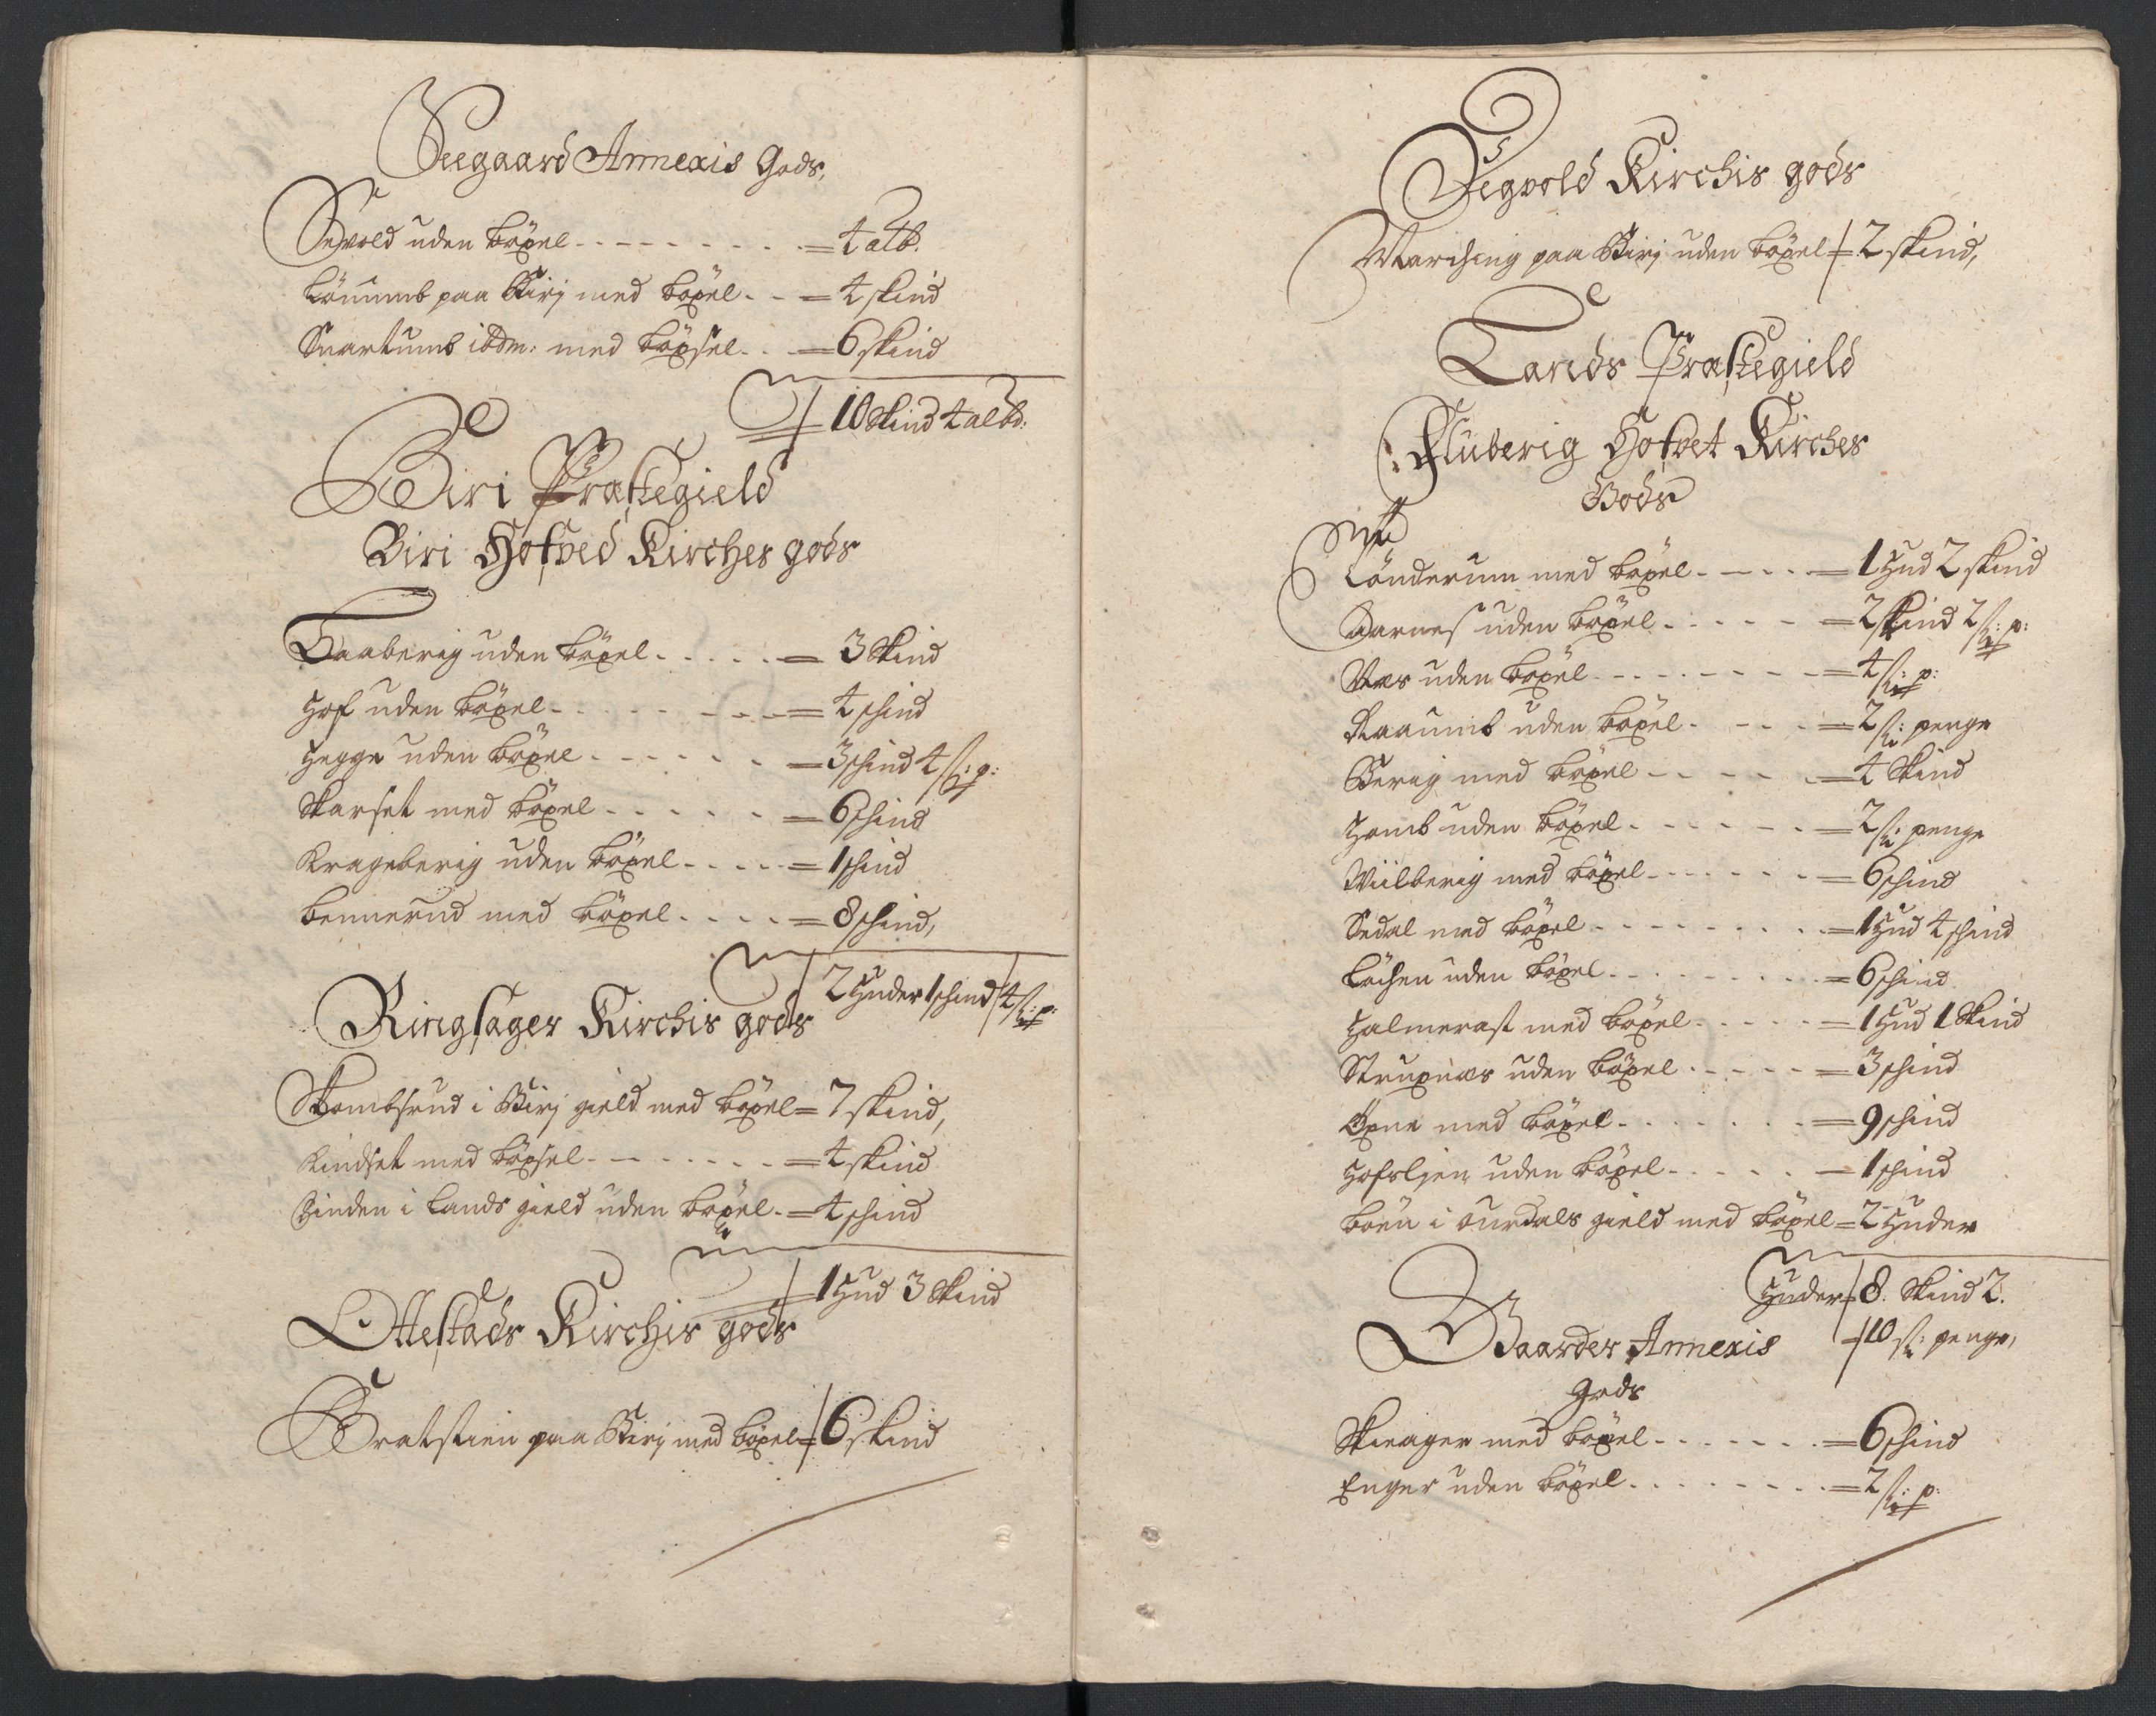 Seegaard Annexis Gods,
Sevold uden böxel - - - - - - - - - = 4 alb.
Lönnumb paa Birj med böxel - - = 4 skind
Snartumb ibdm: med böxsel - - = 6 skind
10 Skind 4 albd:
Biri Præstegield
Biri Hofved Kirches gods
Haaberig uden böxel - - - - - = 3 Skind
Hof uden böxel - - - - - - - - = 4 schind
Hegge uden böxel - - - - - - = 3 schind 4 sk: p:
Skarset med böxel - - - - - = 6 schind
Krageberig uden böxel - - - - = 1 schind
Bennerud med böxel - - - - = 8 schind,
2 Huder 1 schind 4 sk: p:
Ringsager Kirchis gods
Skombsrud i Birj gield med böxel = 7 skind,
Kindset med böxsel - - - - - - - = 4 skind
Linden i Lands gield uden böxel - = 4 schind
1 Hud 3 Skind
Ottestads Kirchis gods
Bratstien paa Birj med böxel = 6 skind
Segvold Kirchis gods
Marching paa Birj uden böxel = 2 skind,
Lands Præstegield
Fluberig Hofvet Kirches
Gods
Lönderum med böxel - - - - = 1 Hud 2 skind
Aarnes uden böxel - - - - - = 2 skind 2 sk: p:
Næs uden böxel - - - - - - - - = 4 sk: p:
Raaumb uden böxel - - - - = 2 sk: penge
Berig med böxel - - - - - = 4 Skind
Homb uden böxel - - - - - - = 2 sk: penge
Wiilberig med böxel - - - - - - = 6 schind
Sedal med böxel - - - - - - - - = 1 Hud 4 schind
Löchen uden böxel - - - - - - - - = 6 schind
Halmerast med böxel - - - - - = 1 Hud 1 Skind
Strupnæs uden böxel - - - - - = 3 schind
Öxne med böxel - - - - - - - = 9 schind
Hofsljen uden böxel - - - - - = 1 schind
Böen i Ourdals gield med böxel = 2 Huder
Huder = 8. Skind 2.
= 10 sk: penge,
Gaarder Annexis
Gods
Skieager med böxel - - - - - - - = 6 schind
Enger uden böxel - - - - - - - - = 2 sk: p: